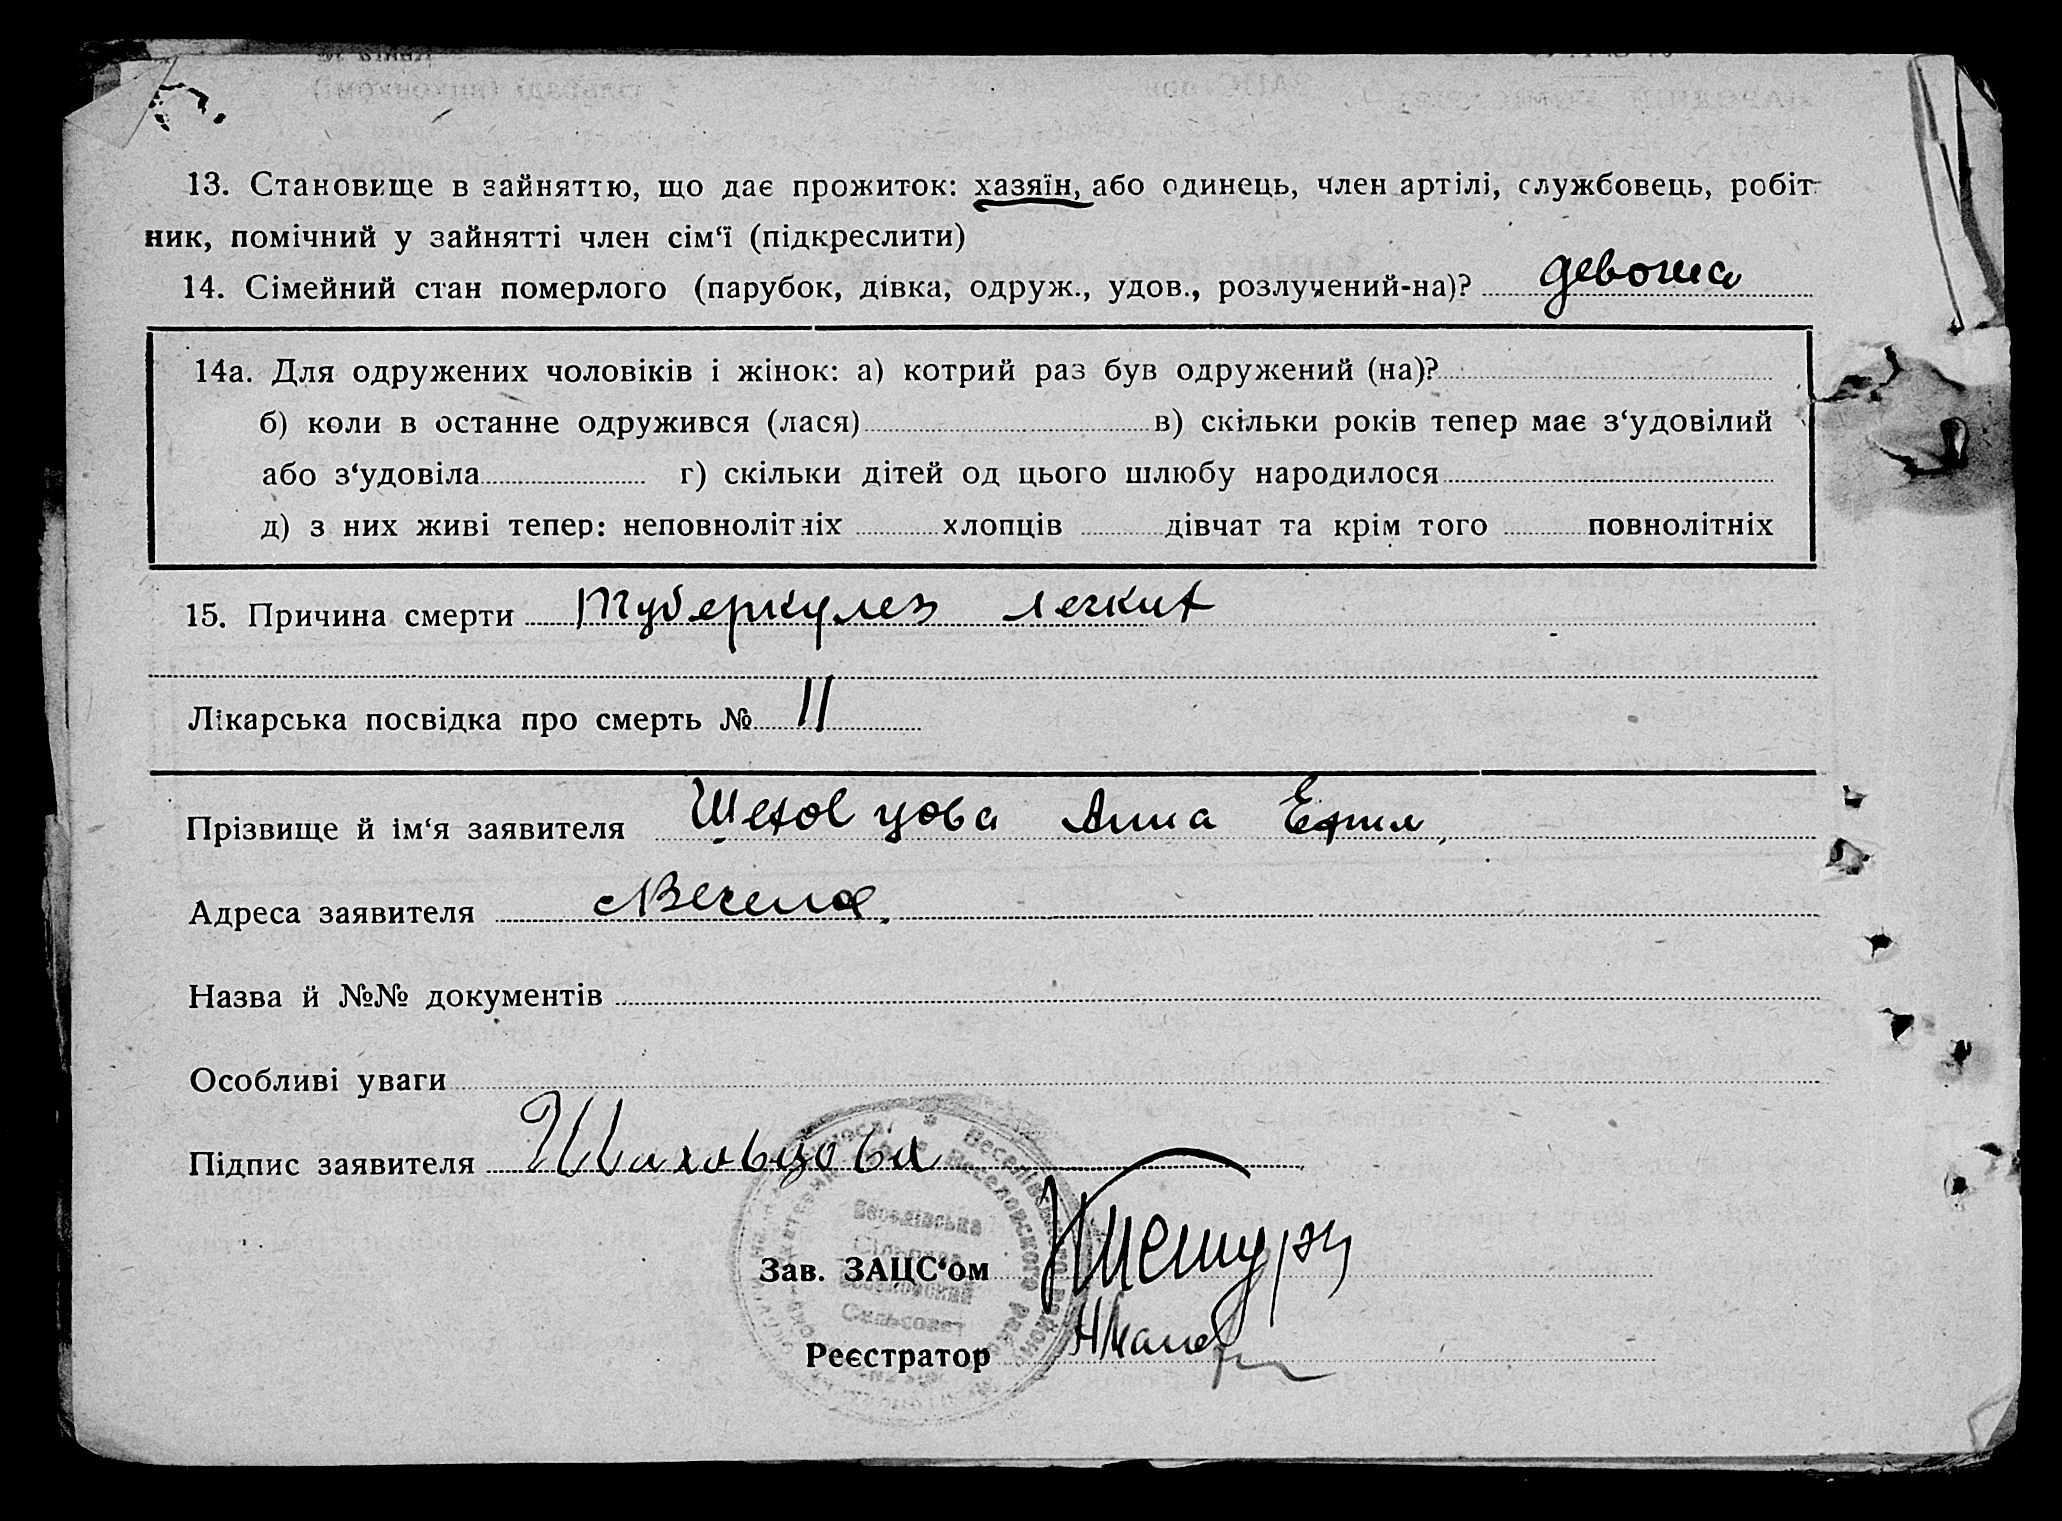 13. Становище в зайняттю, що дає прожиток: хазяїн, або одинець, член артілі, службовець, робіт-
ник, помічний у зайнятті член сім‘ї (підкреслити)
14. Сімейний стан померлого (парубок, дівка, одруж., удов., розлучений-на)? девоша
14а. Для одружених чоловіків і жінок: а) котрий раз був одружений (на)?
б) коли в останне одружився (лася) в) скільки років тепер має з‘удовілий
або з‘удовіла г) скільки дітей од цього шлюбу народилося
д) з них живі тепер: неповнолітніх хлопців дівчат та крім того повнолітніх
15. Причина смерти туберкулез легких
Лікарська посвідка про смерть № 11
Прізвище й ім‘я заявителя Шеховцова Анна Ефим.
Адреса заявителя с Весела.
Назва й №№ документів
Особливі уваги
Підпис заявителя Шаховцова
Веселівська
Сільська
Сельсовет
Зав. ЗАЦС‘ом
Реєстратор